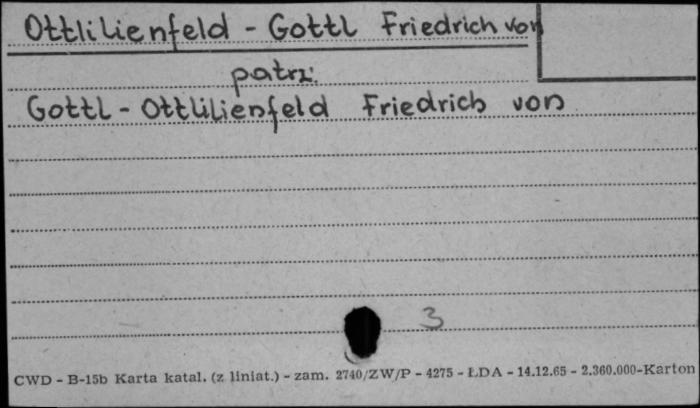 Ottlilienfeld - Gottl Friedrich von
patrz:
Gottl - Ottlilienfeld Friedrich von
3
CWD - B-15b Karta katal. (z liniat.) - zam. 2740/ZW/P - 4275 - ŁDA - 14.12.65 - 2.360.000-Karton